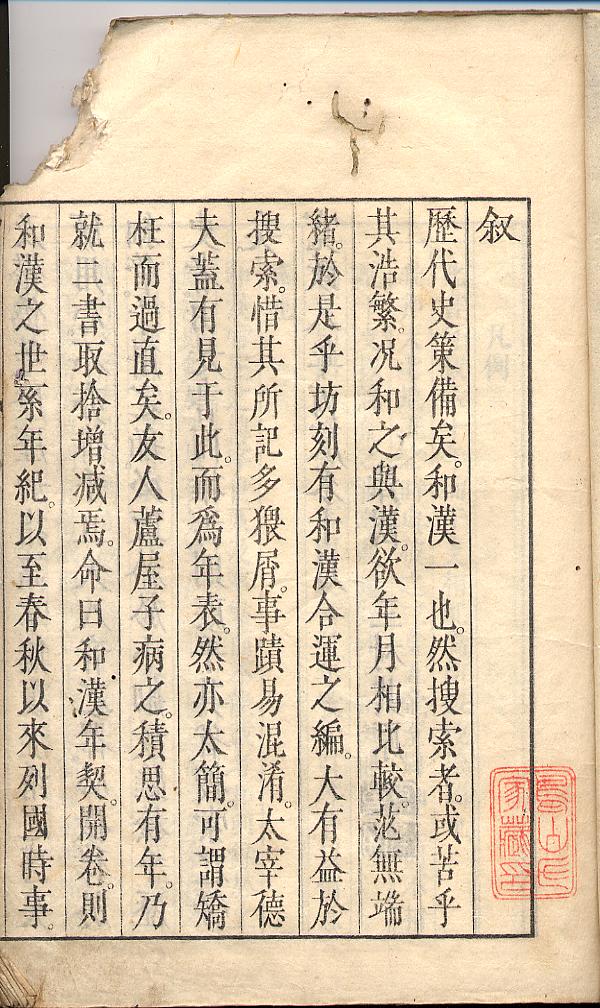 叙
歷代史策備矣。和漢一也。然搜索者。或苦乎
其浩繁。况和之與漢。欲年月相比較。茫無端
緒。於是乎坊刻有和漢合運之編。大有益於
搜索。惜其所記多猥屑。事蹟易混淆。太宰德
夫蓋有見于此。而爲年表。然亦太簡。可謂矯
枉而過直矣。友人蘆屋子病之。積思有年。乃
就二書取捨增減焉。命曰和漢年契。開卷。則
和漢之世系年紀。以至春秋以來列國時事。